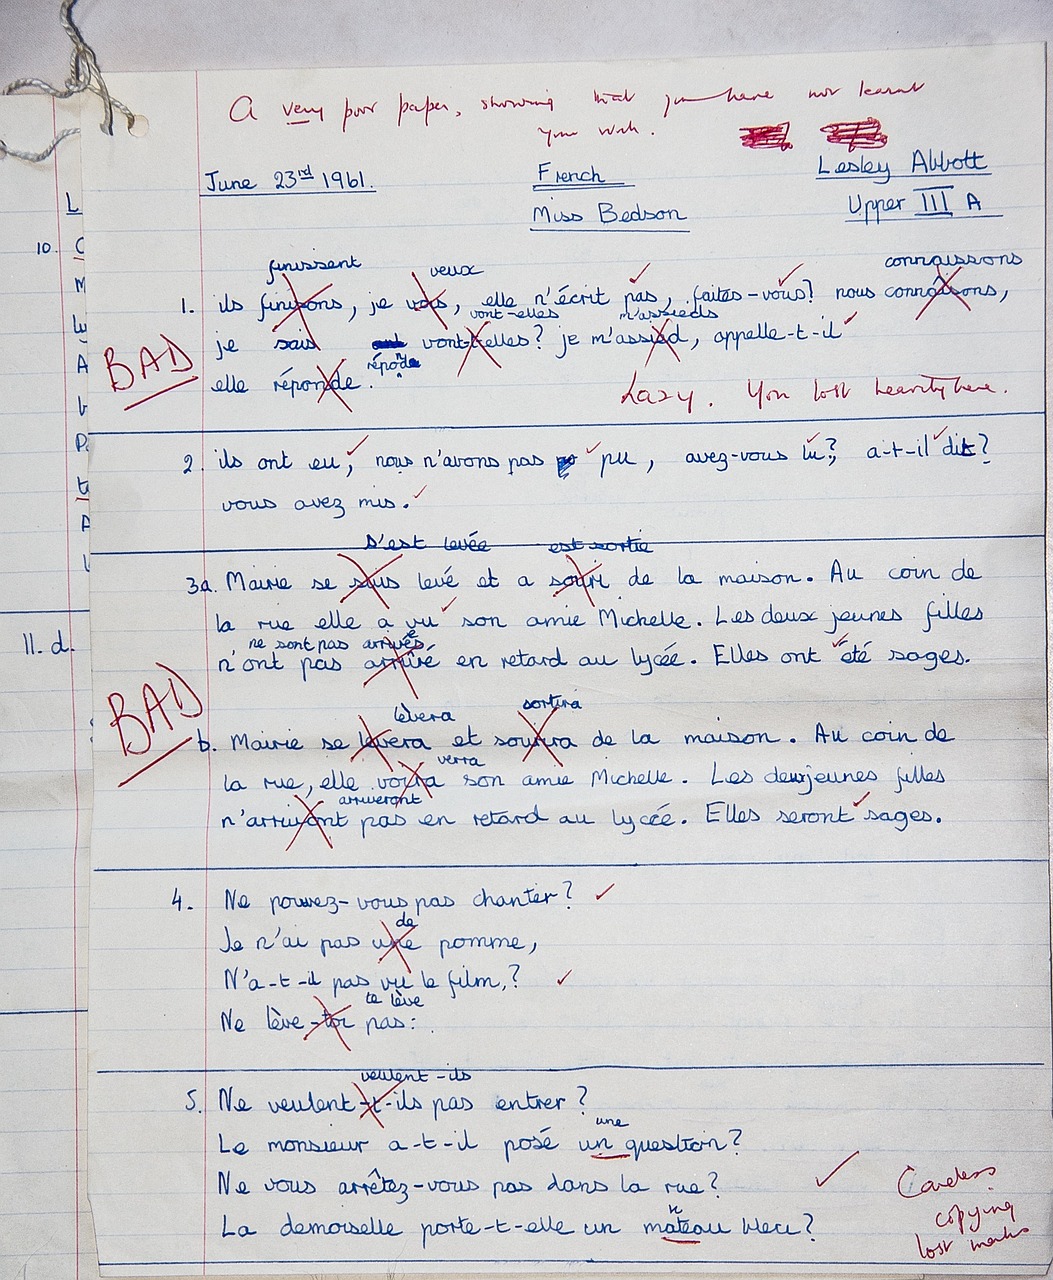 A very poor paper, showing that you have not learnt
your work.
June 23rd 1961.
French
Lesley Abbott
Miss Bedson
Upper III A
finissent veux connaissons
1. ils finissons, je vois, elle n'écrit pas, faites-vous? nous connaisons,
vont-elles m'assieds
BAD
je sais vont-t-elles? je m'assied, appelle-t-il
réponde
elle réponde.
Lazy. You lost heavily here.
2. ils ont eu, nous n'avons pas pu, avez-vous lu?, a-t-il dit?
vous avez mis.
s'est levée est sortie
3a. Mairie se suis levé et a souri de la maison. Au coin de
la rue elle a vu son amie Michelle. Les deux jeunes filles
ne sont pas arrivées
n'ont pas arrivé en retard au lycée. Elles ont été sages.
BAD
lèvera sortira
b. Mairie se levera et sourira de la maison. Au coin de
verra
la rue, elle voira son amie Michelle. Les deux jeunes filles
arriveront
n'arrivont pas en retard au lycée. Elles seront sages.
4. Ne pouvez-vous pas chanter?
de
Je n'ai pas une pomme,
N'a-t-il pas vu le film,?
te lève
Ne lève-toi pas:
veulent-ils
5. Ne veulent-t-ils pas entrer?
une
Le monsieur a-t-il posé un question?
Ne vous arrêtez-vous pas dans la rue?
n
La demoiselle porte-t-elle un mateau bleu?
Careless
copying
lost marks
10.
L
C
M
A
P
A
11. d.